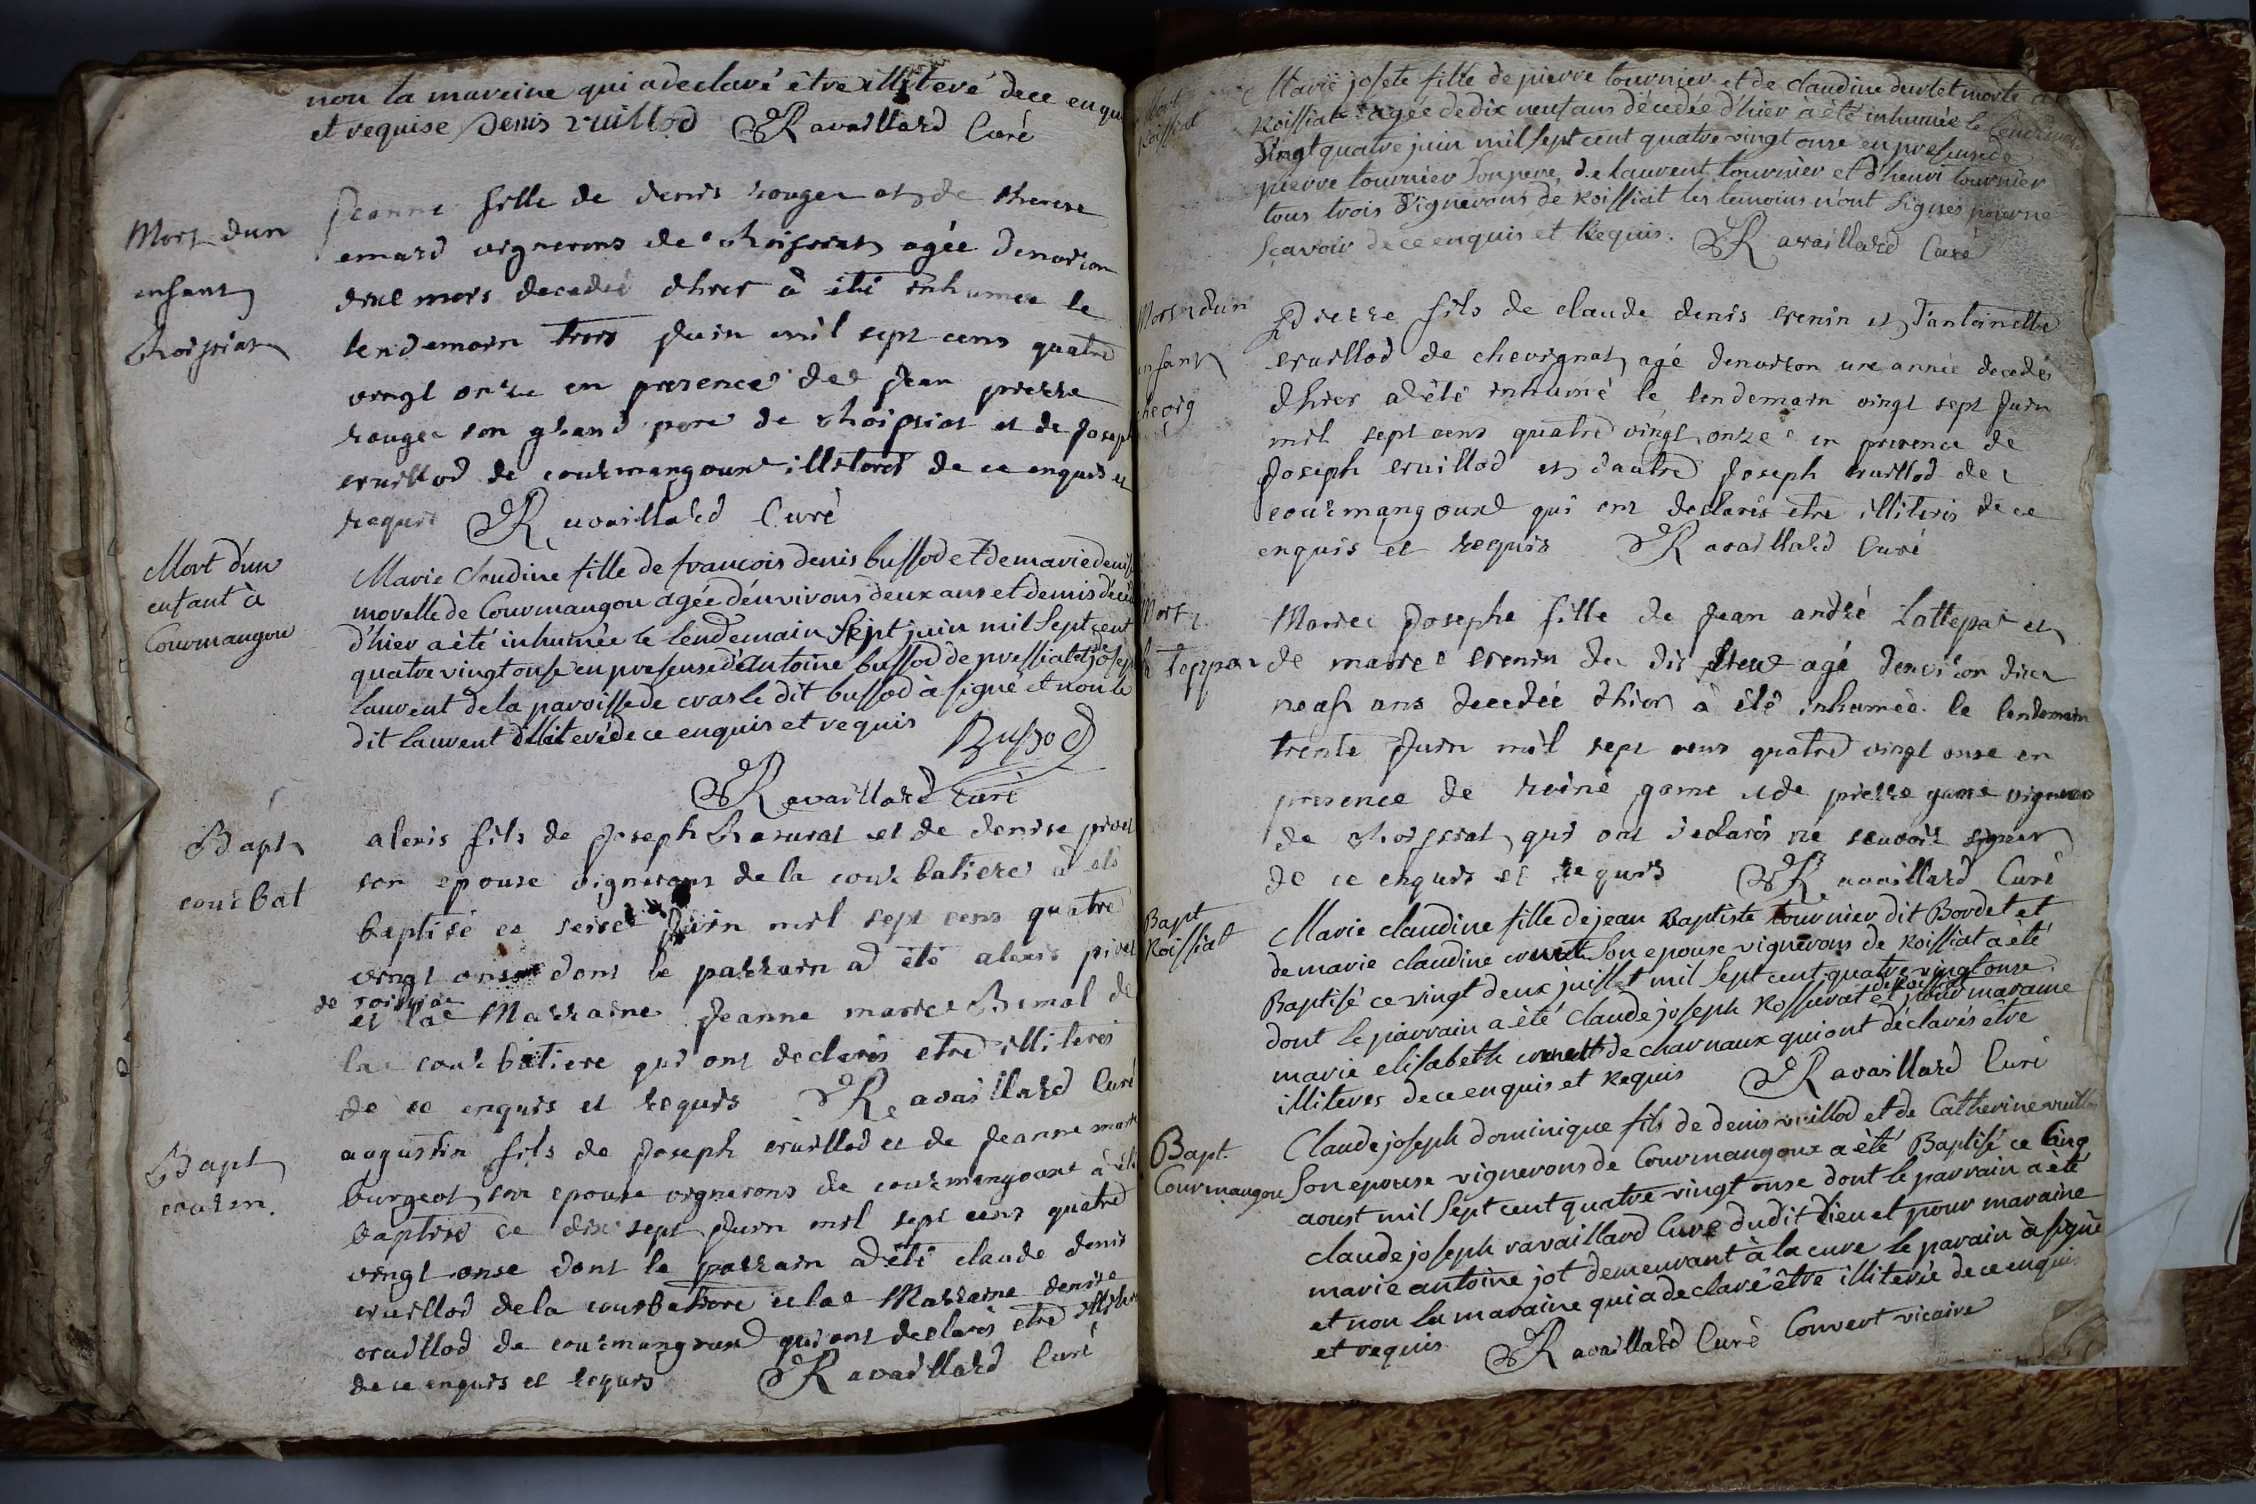 non la mareine qui a declaré être illiteré de ce enqu
et requise Denis vuillod Ravaillard Curé
Mort dun
enfant
Roissiat
jeanne fille de denis rouger et de therese
emard vignerons de Roissiat agée denviron
mois decedée dhier à été inhumée le
lendemain trois juin mil sept cens quatre
vingt onze en presence de jean pierre
rouger son grand pere de Roissiat et de joseph
vuillod de courmangoux illiterés de ce enquis et
requis Ravaillard Curé
Mort d'un
enfant à
Courmangou
Marie Claudine fille de francois denis bussod et de marie denis
morelle de Courmangou agée d'envivons deux ans et demis décéd
d'hier a été inhumée le lendemain sept juin mil sept cent
quatre vingt onse en presense d'Antoine bussod de pressiat et de josep
Lauvent de la pavoisse de cras le dit bussod à signé et non le
dit Lauvent illiteré de ce enquis et requis Bussod
Ravaillard curé
Bapt
courbat
alexis fils de joseph Rasurat et de denise pivet
son epouse vignerons de la courbatiere à eté
baptisé ce seise juin mil sept cens quatre
vingt onse dont le parrain a été alexis pivet
de roissiat
et la Marraine jeanne marie Bemal de
la courbatiere qui ont declarés etre illiterés
de ce enquis et requis Ravaillard Curé
Bapt
courm.
augustin fils de joseph vuillod et de jeanne marie
burgeot son epouse vignerons de courmangoux à été
baptisé ce dix sept juin mil sept cens quatre
vingt onse dont le parrain a été claude denis
vuillod de la courbatiere et la Marraine denise
vuillod de courmangoux qui ont declarés etre illiter
de ce enquis et requis Ravaillard Curé
Mort
Roissiat
Marie josete fille de pierre tournier et de claudine durlet morte à
Roissiat agée de dix neuf ans décedée d'hier à été inhumée le lendemain
vingt quatre juin mil sept cent quatre vingt onse en presense de
pierre tournier son pere, de lauvent tournier et d'henri tournier
tous trois vignerons de Roissiat les temoins n'ont signés pour ne
sçavoir de ce enquis et Requis. Ravaillard Curé
Mort dun
enfant
chevig
Pierre fils de claude denis evenin et Dantoinette
vruillod de chevignat agé denviron une année decedés
dhier a été inhumé le lendemain vingt sept juin
mil sept cens quatre vingt onze en presence de
joseph vruillod et dautre joseph vruillod de
courmangoux qui ont declarés etre illiterés de ce
enquis et requis Ravaillard Curé
Mort
teppar
Marie josephe fille de jean andré Lattepar et
de marie evenin du dit lieu agé denviron dix
neuf ans decedée dhier à été inhumée le lendemain
trente juin mil sept cens quatre vingt onse en
presence de reiné game et de pierre game vigneron
de Roissiat qui ont declarés ne scavoir signer
de ce enquis et requis Ravaillard Curé
Bapt
Roissiat
Marie claudine fille de jean Baptiste tournier dit Bordet et
de marie claudine son epouse vignerons de Roissiat a été
Baptisé ce vingt deux juillet mil sept cent quatre vingt onse
dont le parrain a été claude joseph Rossurat de Roissiat et pour maraine
marie elisabeth de charnaux qui ont déclarés etre
illiteres de ce enquis et Requis Ravaillard Curé
Bapt.
Courmangou
Claude joseph dominique fils de denis vuillod et de Catherine vuillo
son epouse vignerons de Courmangoux a été Baptisé ce cinq
aoust mil sept cent quatre vingt onse dont le parrain a été
claude joseph ravaillard Curé dudit lieu et pour maraine
marie antoine jot demeurant à la cure le parain à signé
et non la maraine qui a declaré être illiterée de ce enquis
et requis Ravaillard Curé Convert vicaire